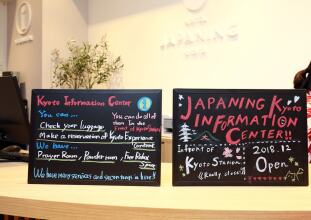 JAPANING
Kyoto Information Center
You can...
You can do all of
them in the
Front of Kyoto Station
Check your luggage
Make a reservation of Kyoto Experience
We have...
Prayer Room, Powder room, Free Relax
Space
We have many services and secret things in here!!
JAPANING Kyoto
INFORMATION
CENTER!!
In front of
Kyoto Station
(Really close!)
2018.12
Open